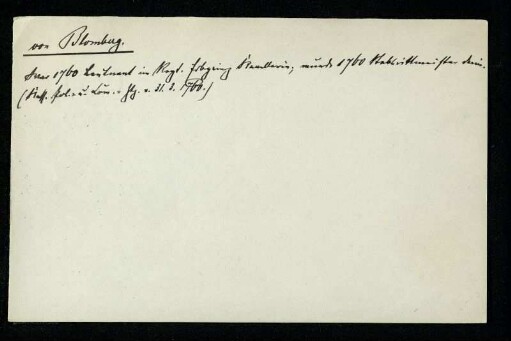 von Blomberg.
War 1760 Leutnant im Regt. Erbprinz Kavallerie, wurde 1760 Stabsrittmeister darin.
(Kass. Pol.- u. Com.- Ztg. v. 31. 3. 1760.)